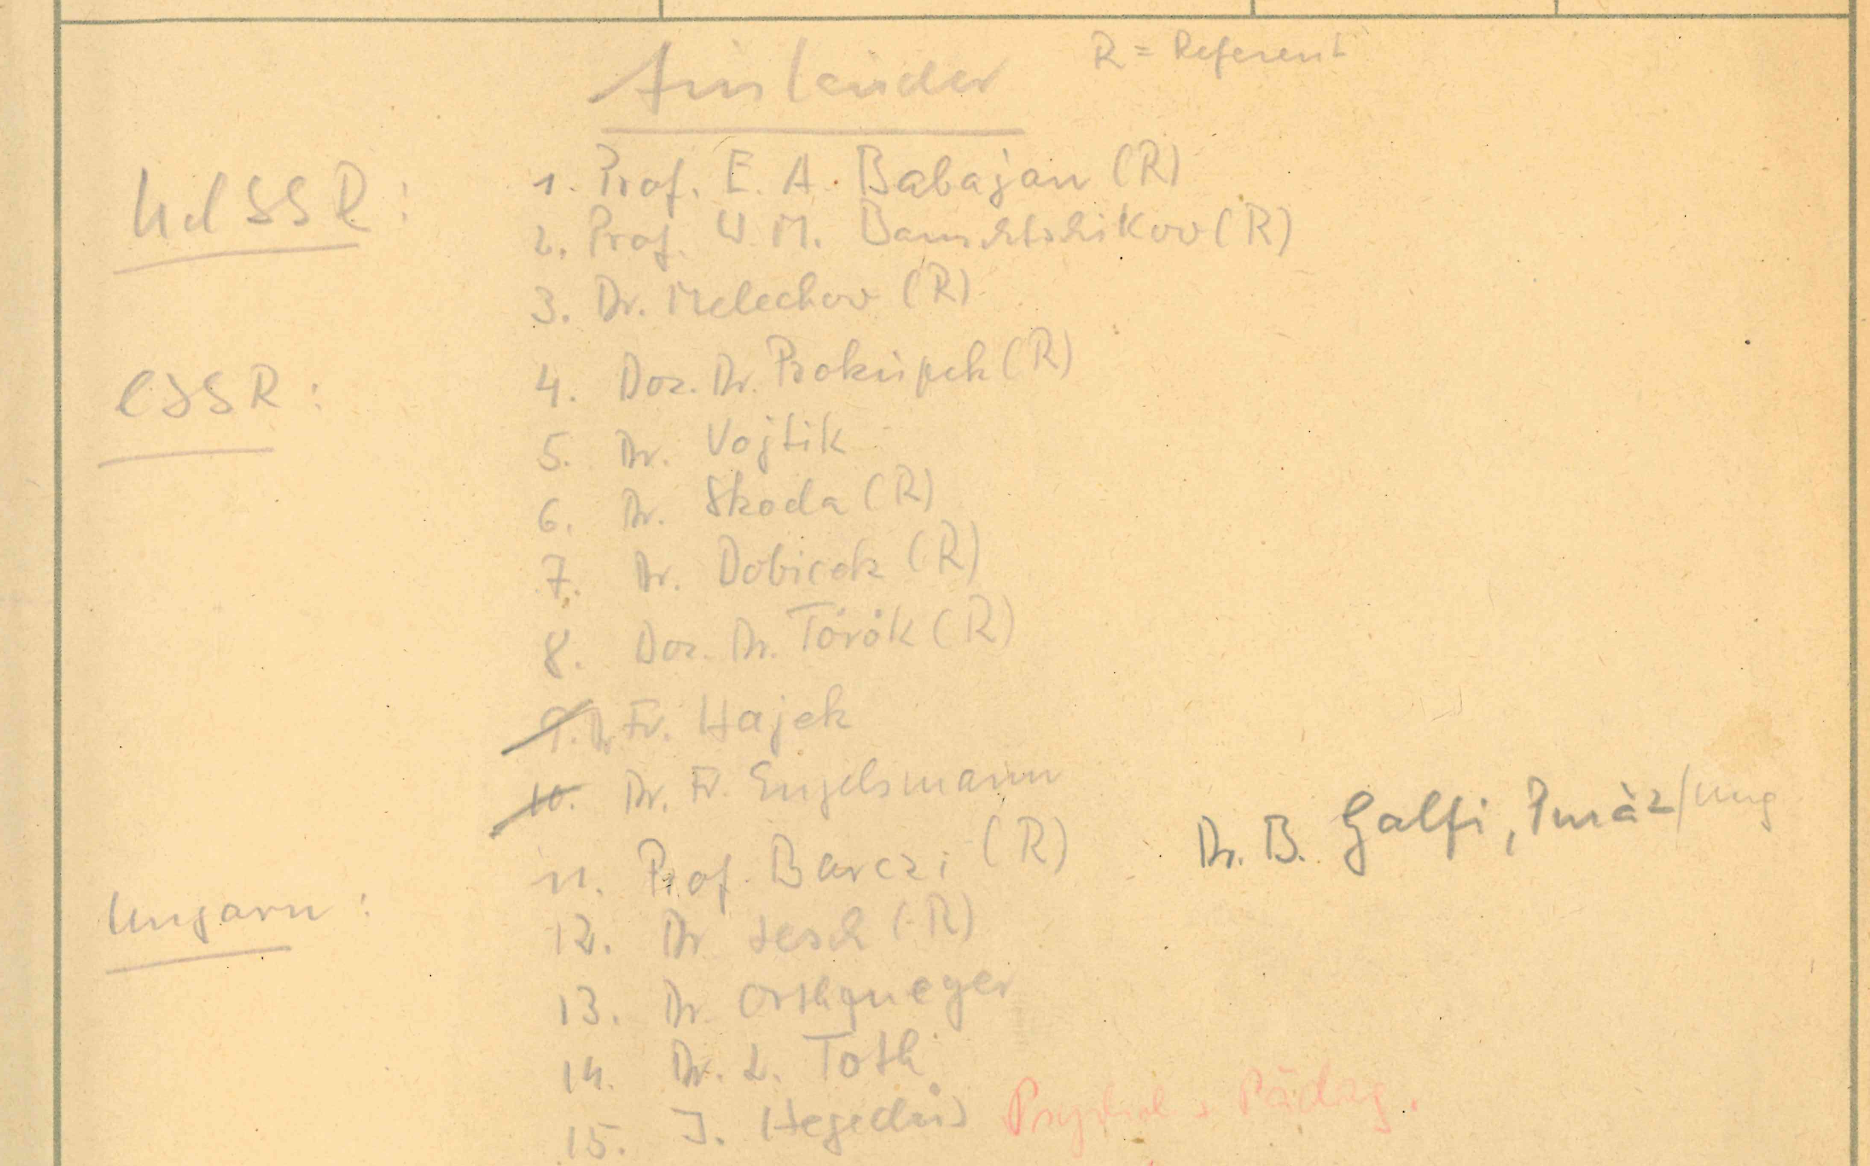 Ausländer R = Referent
UdSSR: 1. Prof. E. A. Babajan (R)
2. Prof. W. M. Banschtshikow (R)
3. Dr. Melechow (R)
CSSR: 4. Doz. Dr. Prokúpek (R)
5. Dr. Vojtik
6. Dr. Skoda (R)
7. Dr. Dobicek (R)
8. Doz. Dr. Török (R)
9. Dr. Fr. Hajek
10. Dr. Fr. Engelsmann
Dr. B. Galfi, /Ung
Ungarn: 11. Prof. Barczi (R)
12. Dr (R)
13. Dr. Orthmeyer
14. Dr. L. Toth
15. J. Hegedüs Psychol + Pädag.